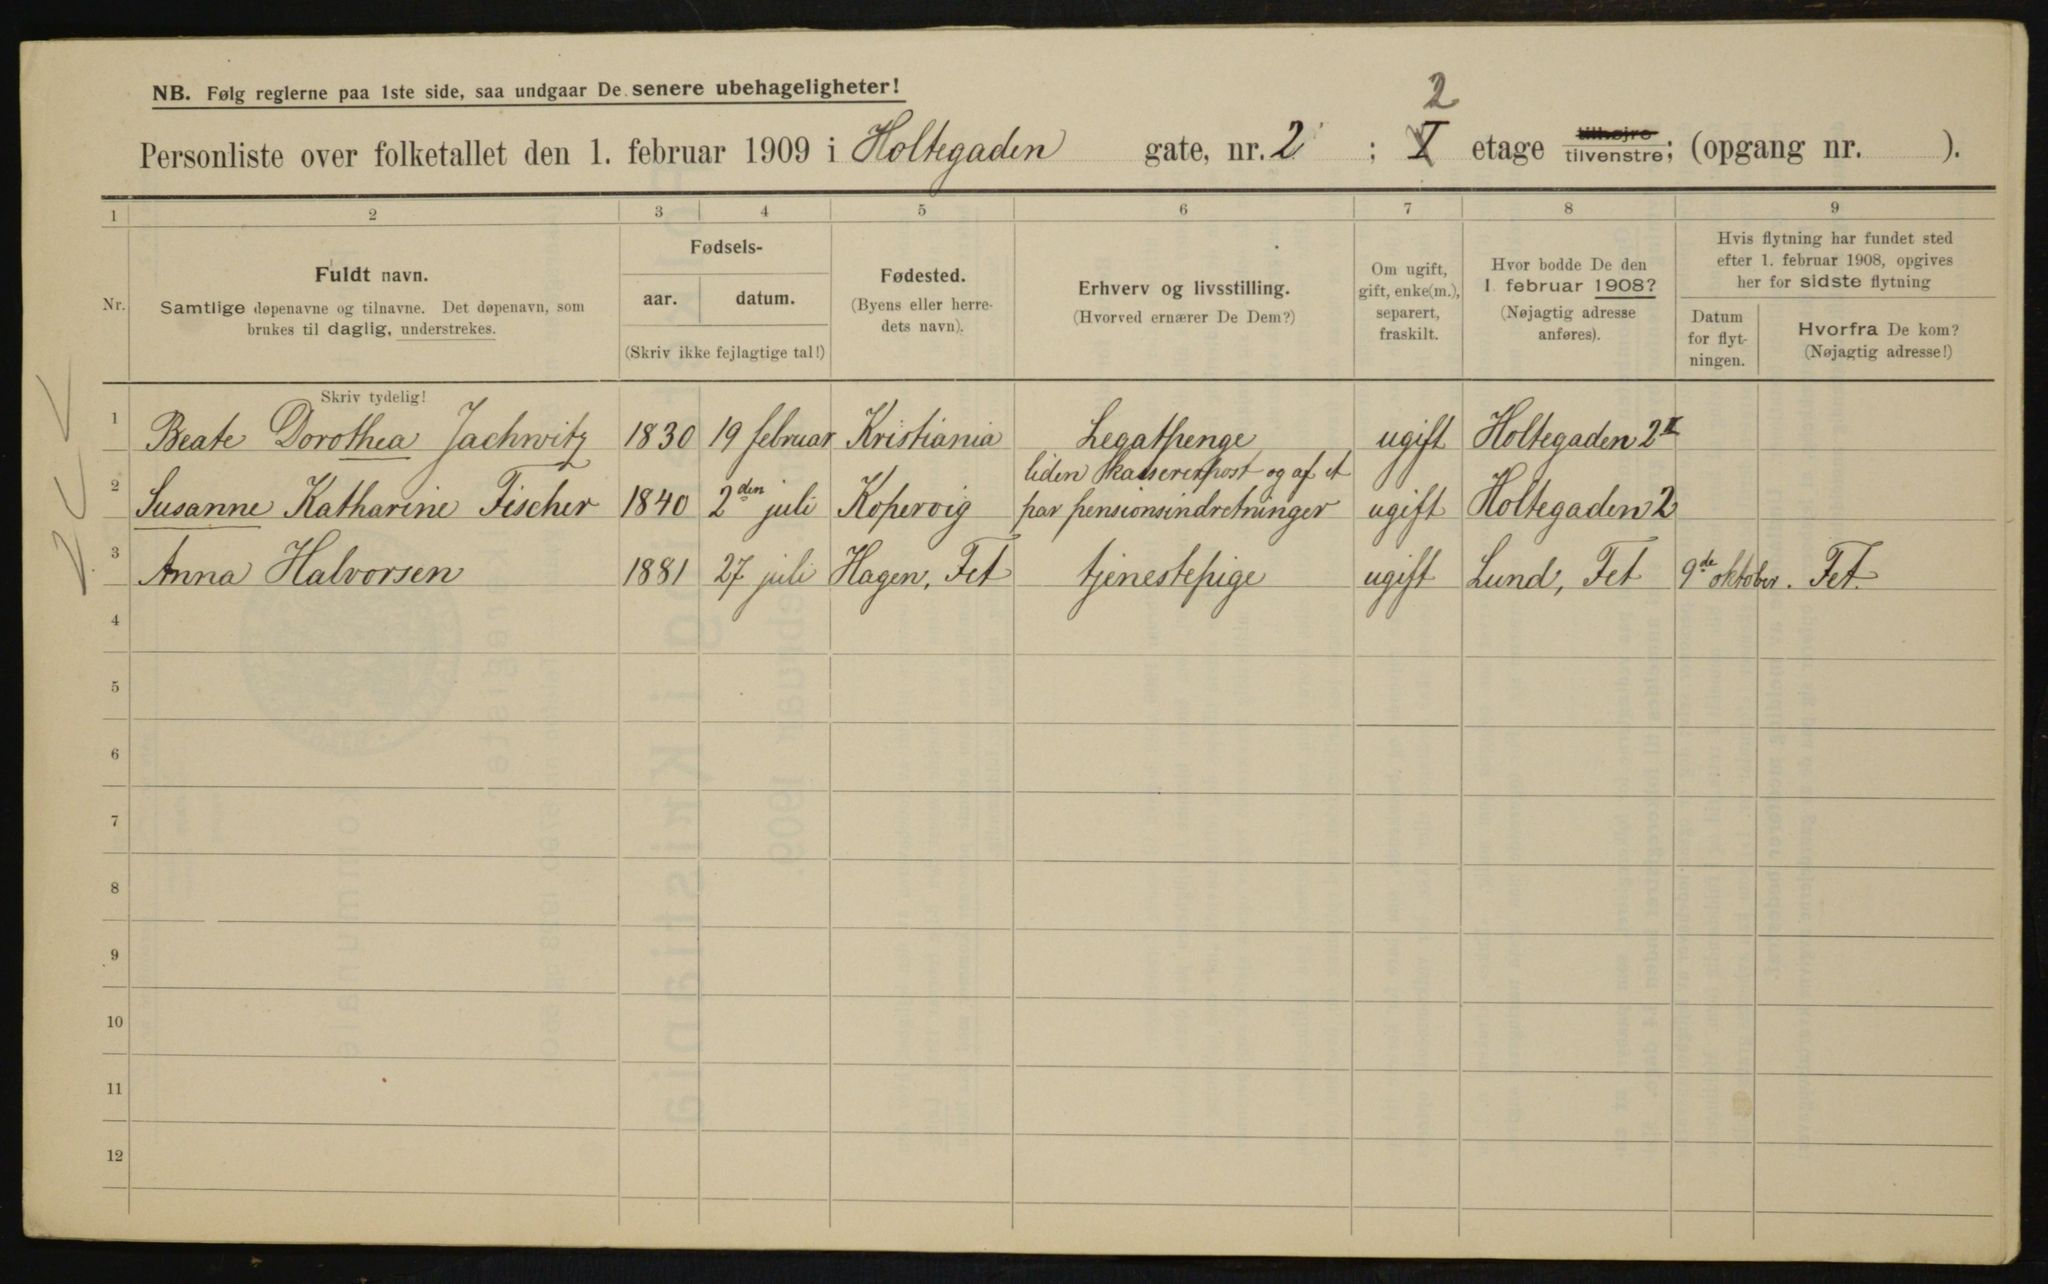 NB. Følg reglerne paa 1ste side, saa undgaar De senere ubehageligheter!
2
Personliste over folketallet den 1. februar 1909 i Holtegaden gate, nr. 2 ; I etage tilhøjre tilvenstre; (opgang nr. ).
1 2 3 4 5 6 7 8 9
Nr.
Fuldt navn.
Samtlige døpenavne og tilnavne. Det døpenavn, som
brukes til daglig, understrekes.
Fødsels-
aar. datum.
(Skriv ikke fejlagtige tal!)
Fødested.
(Byens eller herre-
dets navn).
Erhverv og livsstilling.
(Hvorved ernærer De Dem?)
Om ugift,
gift, enke(m.),
separert,
fraskilt.
Hvor bodde De den
1. februar 1908?
(Nøjagtig adresse
anføres).
Hvis flytning har fundet sted
efter 1. februar 1908, opgives
her for sidste flytning
Datum
for flyt-
ningen.
Hvorfra De kom?
(Nøjagtig adresse!)
Skriv tydelig!
1 Beate Dorothea Jachwitz 1830 19 februar Kristiania Legatpenge ugift Holtegaden 2 II
liden kassererpost og af et
2 Susanne Katharine Fischer 1840 2den juli Kopervig par pensionsindretninger ugift Holtegaden 2
3 Anna Halvorsen 1881 27 juli Hagen, Fet tjenestepige ugift Lund, Fet 9de oktober. Fet.
4
5
6
7
8
9
10
11
12